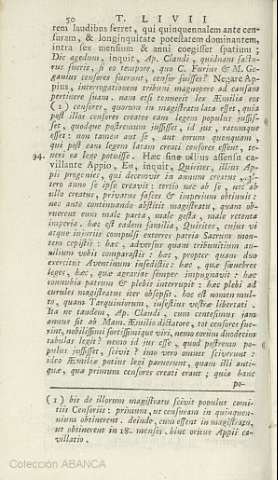 50 T. LIVII
rem laudibus ferret, qui quinquennalem ante cen-
suram, & longinquitate potestatem dominantem,
intra sex mensium & anni coegisset spatium;
Dic agedum, inquit, Ap. Claudi, quidnam factu-
rus fueris, si eo tempore, quo C. Furius & M. Ge-
ganius censores fuerunt, censor fuisses? Negare Ap-
pius, interrogationem tribuni magnopere ad causam
pertinere suam. nam etsi tenuerit lex Æmilia eos
(1) censores, quorum in magistratu lata esset, quia
post illos censores creatos eam legem populus jussis-
set, quodque postremum jussisset, id jus, ratumque
esset: non tamen aut se, aut eorum quemquam,
qui post eam legem latam creati censores essent, te-
34. neri ea lege potuisse. Hæc sine ullius assensu ca-
villante Appio, En, inquit, Quirites, illius Ap-
pii progenies, qui decemvir in annum creatus al-
tero anno se ipse creavit: tertio nec ab se, nec ab
ullo creatus, privatus fasces & imperium obtinuit:
nec ante continuando abstitit magistratu, quam ob-
ruerent eum male parta, male gesta, male retenta
imperia. hæc est eadem familia, Quirites, cujus vi
atque injuriis compulsi extorres patria Sacrum mon-
tem cepistis: hæc, adversus quam tribunitium au-
xilium vobis comparastis: hæc, propter quam duo
exercitus Aventinum insedistis: hæc, quæ fœnebres
leges, hæc, quæ agrarias semper impugnavit: hæc
connubia patrum & plebis interrupit: hæc plebi ad
curules magistratus iter obsepsit. hoc est nomen mul-
to, quam Tarquiniorum, infestius vestræ libertati.
Ita ne tandem, Ap. Claudi, cum centesimus jam
annus sit ab Mam. Æmilio dictatore, tot censores fue-
runt, nobilissimi fortissimique viri, nemo eorum duodecim
tabulas legit? nemo id jus esse, quod postremo po-
pulus jussisset, scivit? imo vero omnes sciverunt:
ideo Æmiliæ potius legi paruerunt, quam illi anti-
quæ, qua primum censores creati erant; quia hanc
po-
(1) bis de illorum magistratu scivit populus comi-
tiis Censoriis: primum, ut censuram in quinquen-
nium obtinerent. deinde, cum essent in magistratu,
ut obtinerent in 18. menses. hinc oritur Appii ca-
villatio.
Colección ABANCA